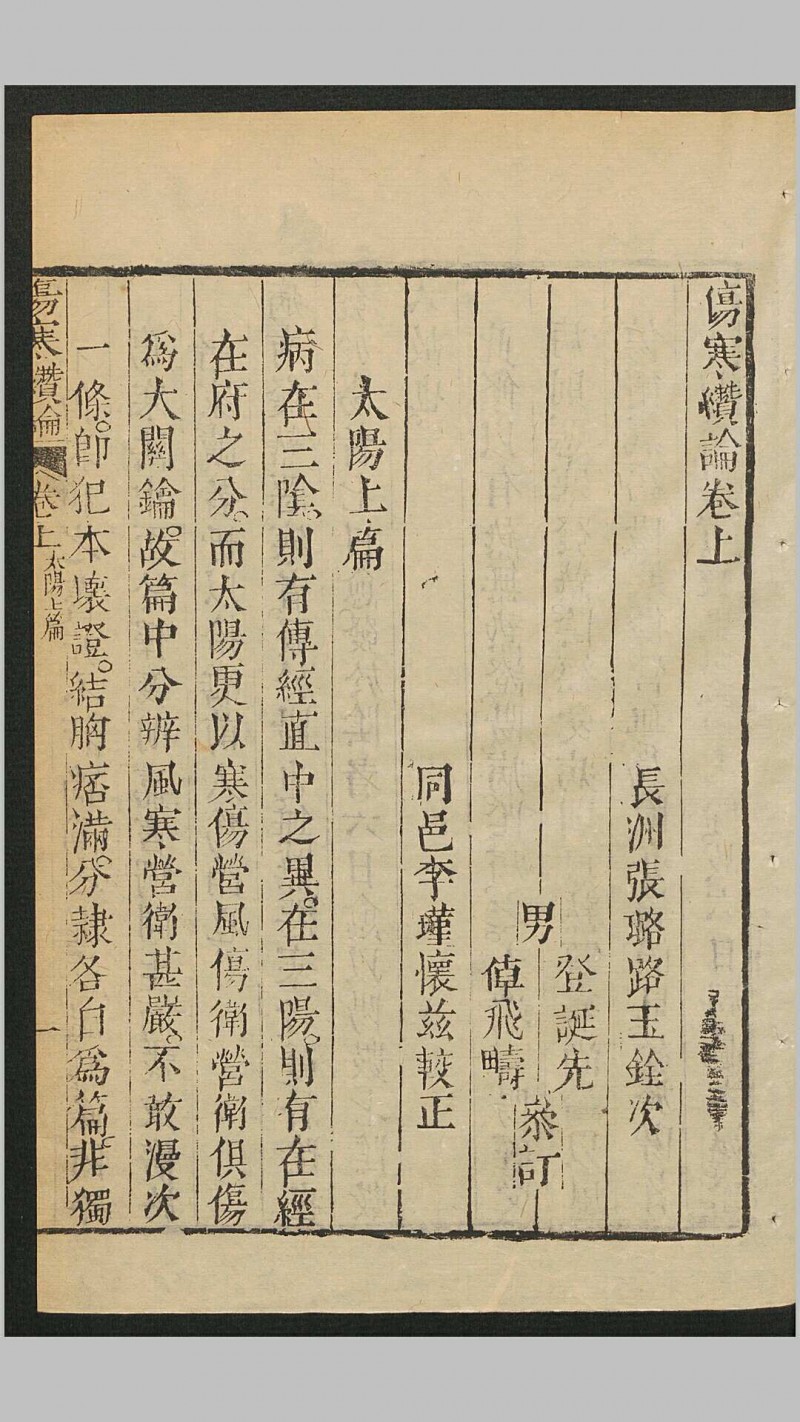 傷寒纘論卷上
長洲張璐路玉銓次
男
登誕先
倬飛疇
叅訂
同邑李瑾懷茲較正
太陽上篇
病在三陰。則有傳經直中之異。在三陽。則有在經
在府之分。而太陽更以寒傷營風傷衛營衛俱傷
爲大關鑰。故篇中分辨風寒營衛甚嚴。不敢漫次
一條。卽犯本壞證。結胸痞滿。分隷各自爲篇。非獨
傷寒纘論 卷上 太陽上篇 一